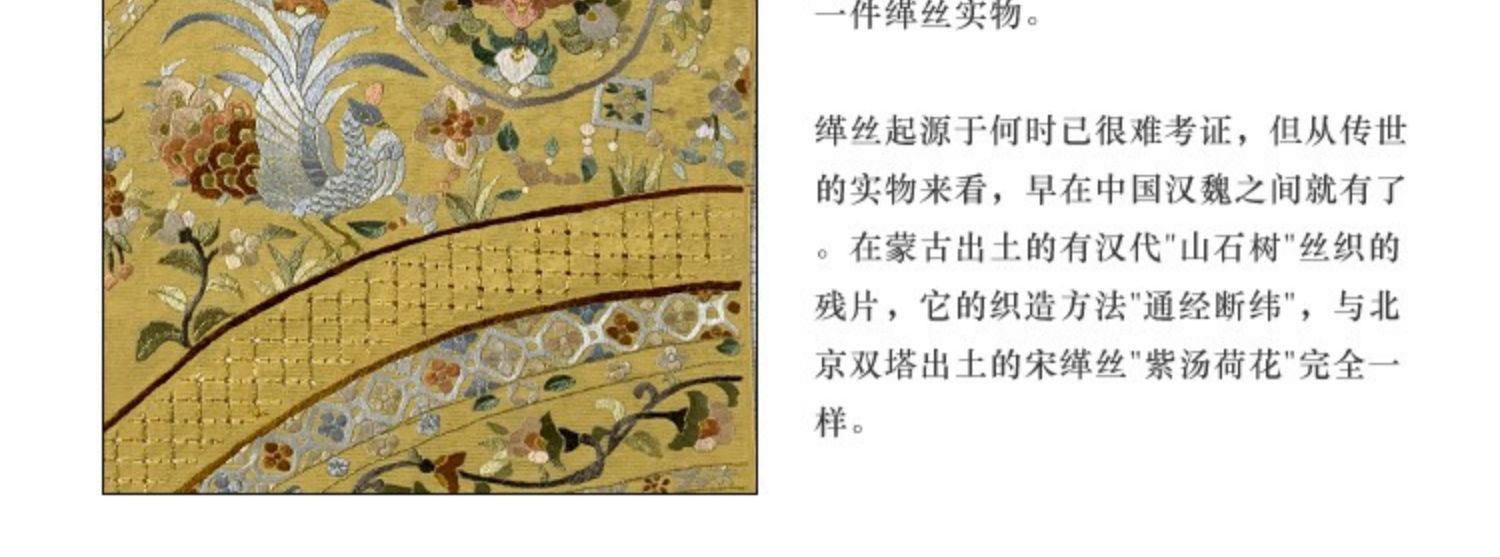 一件缂丝实物。
缂丝起源于何时已很难考证，但从传世
的实物来看，早在中国汉魏之间就有了
。在蒙古出土的有汉代"山石树"丝织的
残片，它的织造方法"通经断纬"，与北
京双塔出土的宋缂丝"紫汤荷花"完全一
样。